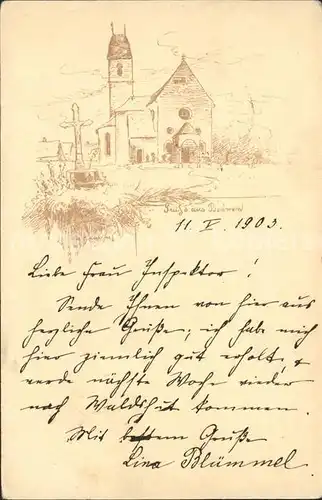 Gruß aus
11. V. 1903.
Liebe Frau Inspektor!
Sende Ihnen von hier aus
herzliche Grüße; ich habe mich
hier ziemlich gut erholt, &
werde nächste Woche wieder
nach Waldshut kommen.
Mit bestem Gruße
Lina Blümmel